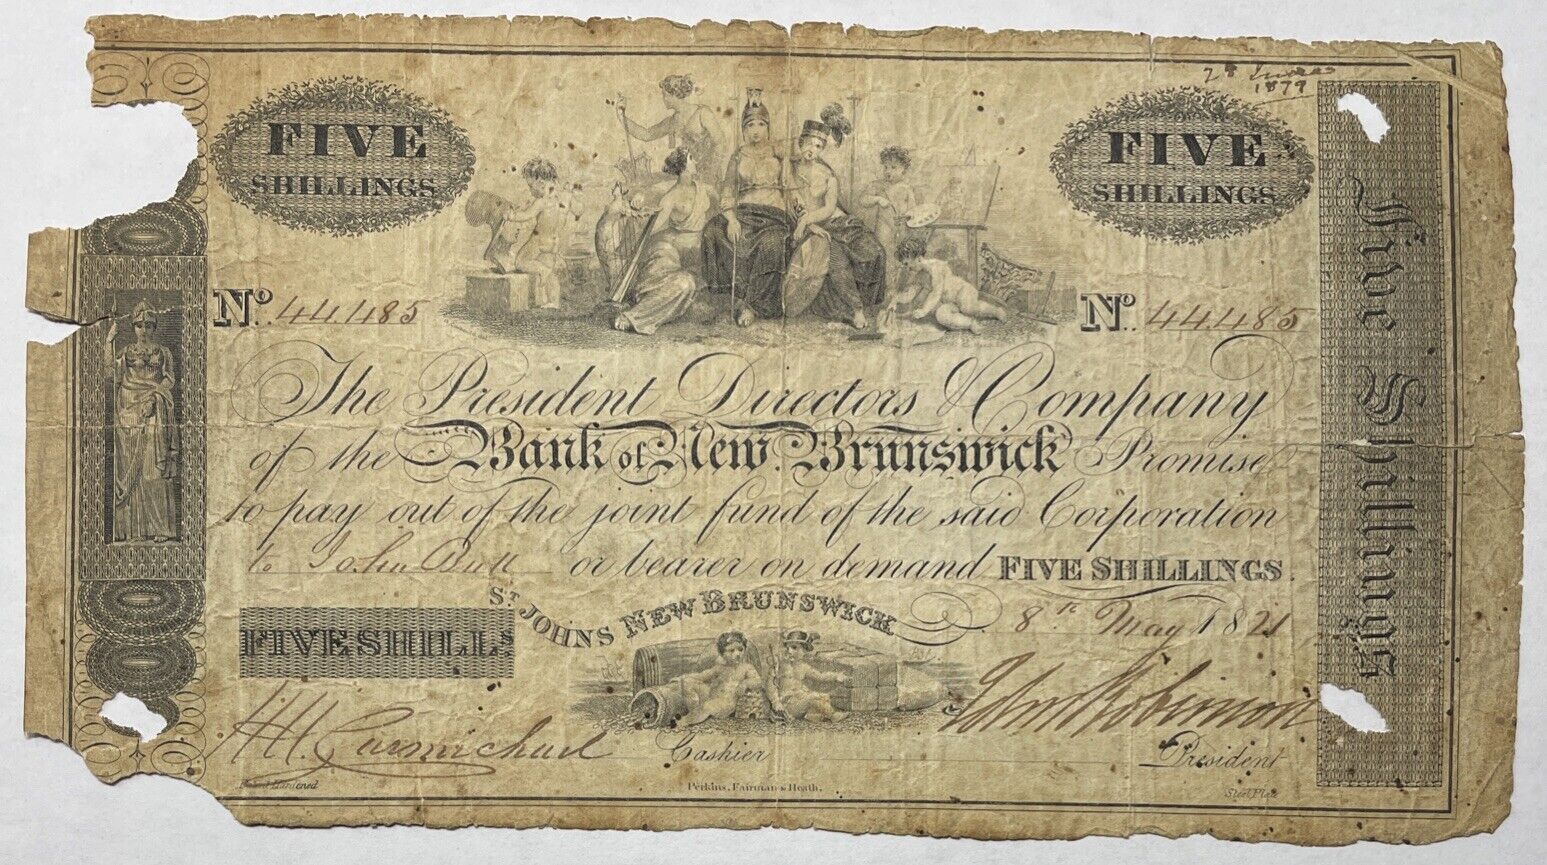 1879
FIVE
SHILLINGS
FIVE
SHILLINGS
No. 44485
No. 44485
The President Directors & Company
of the Bank of New Brunswick Promise
to pay out of the joint fund of the said Corporation
to John Bull or bearer on demand FIVE SHILLINGS
ST. JOHNS NEW BRUNSWICK
8th May 1821
FIVE SHILLs
H H Carmichael Cashier
John Robinson President
Patent Hardened
Perkins, Fairman & Heath.
Steel Plate
Five Shillings